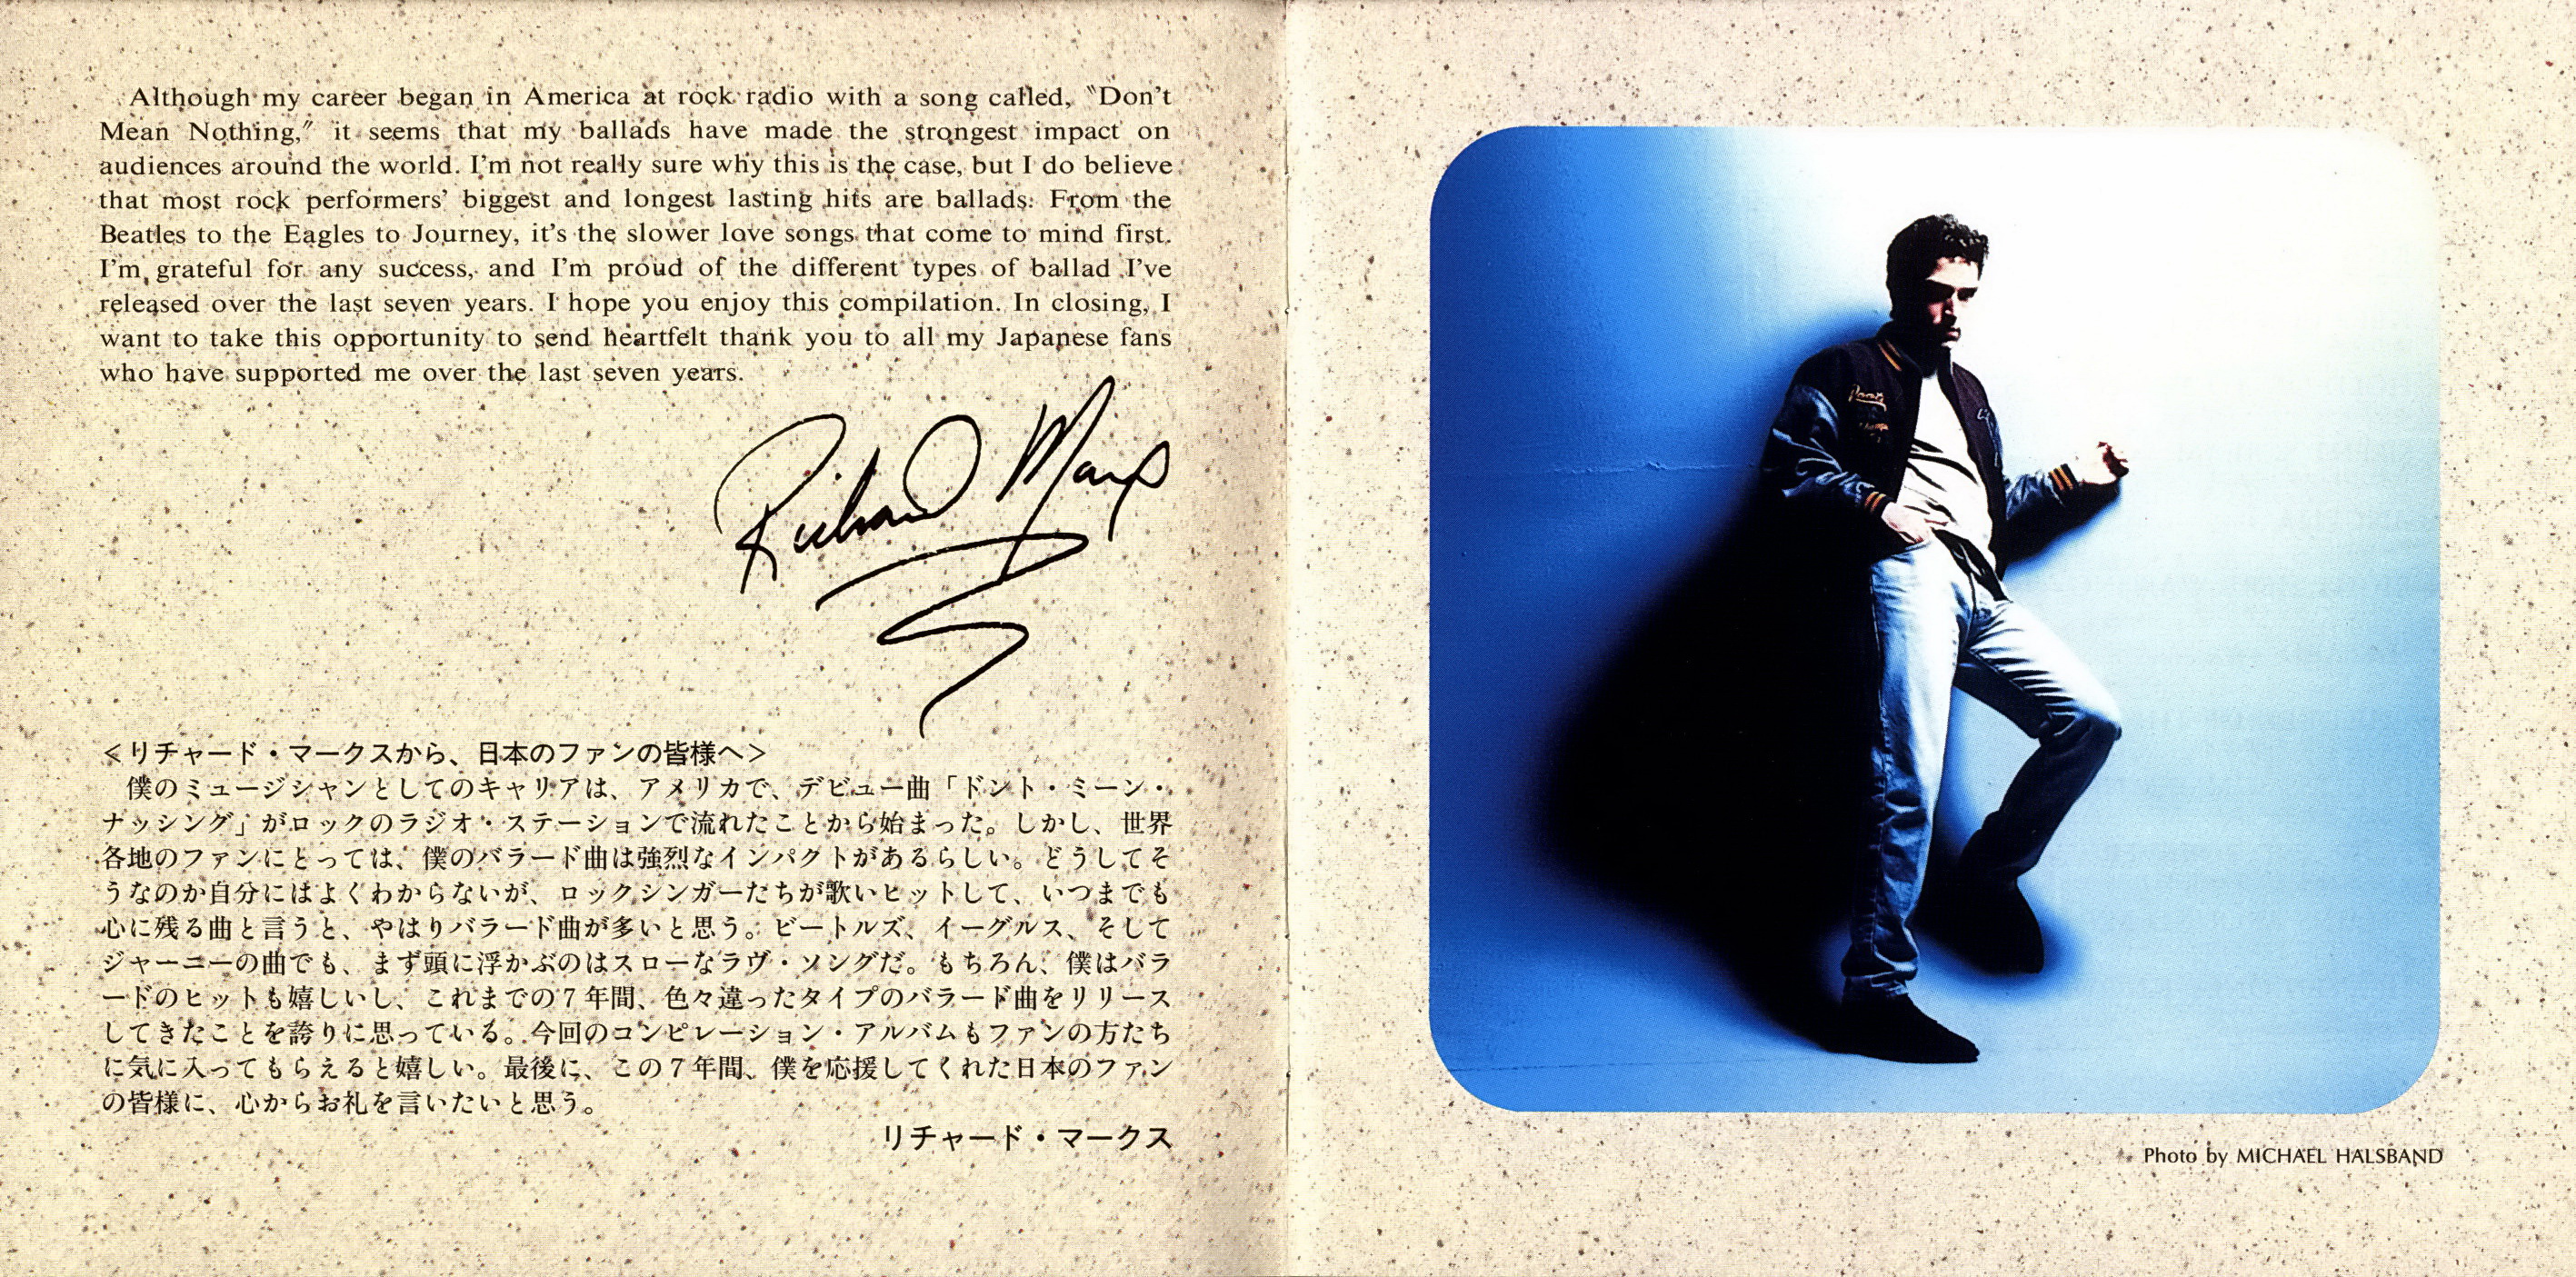 Although my career began in America at rock radio with a song called, "Don't
Mean Nothing," it seems that my ballads have made the strongest impact on
audiences around the world. I'm not really sure why this is the case, but I do believe
that most rock performers' biggest and longest lasting hits are ballads. From the
Beatles to the Eagles to Journey, it's the slower love songs that come to mind first.
I'm grateful for any success, and I'm proud of the different types of ballad I've
released over the last seven years. I hope you enjoy this compilation. In closing, I
want to take this opportunity to send heartfelt thank you to all my Japanese fans
who have supported me over the last seven years.
Richard Marx
<リチャード・マークスから、日本のファンの皆様へ>
僕のミュージシャンとしてのキャリアは、アメリカで、デビュー曲「ドント・ミーン・
ナッシング」がロックのラジオ・ステーションで流れたことから始まった。しかし、世界
各地のファンにとっては、僕のバラード曲は強烈なインパクトがあるらしい。どうしてそ
うなのか自分にはよくわからないが、ロックシンガーたちが歌いヒットして、いつまでも
心に残る曲と言うと、やはりバラード曲が多いと思う。ビートルズ、イーグルス、そして
ジャーニーの曲でも、まず頭に浮かぶのはスローなラヴ・ソングだ。もちろん、僕はバラ
ードのヒットも嬉しいし、これまでの7年間、色々違ったタイプのバラード曲をリリース
してきたことを誇りに思っている。今回のコンピレーション・アルバムもファンの方たち
に気に入ってもらえると嬉しい。最後に、この7年間、僕を応援してくれた日本のファン
の皆様に、心からお礼を言いたいと思う。
リチャード・マークス
Photo by MICHAEL HALSBAND